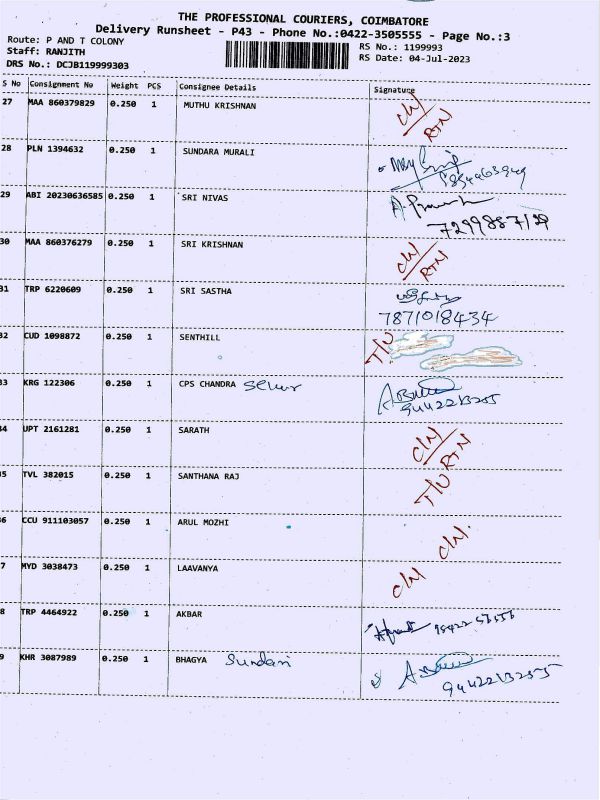 THE PROFESSIONAL COURIERS, COIMBATORE
Delivery Runsheet - P43 - Phone No.:0422-3505555 - Page No.:3
Route: P AND T COLONY
Staff: RANJITH
DRS No.: DCJB119999303
RS No.: 1199993
RS Date: 04-Jul-2023
S No Consignment No Weight PCS Consignee Details Signature
27 MAA 860379829 0.250 1 MUTHU KRISHNAN C/N/ RTN
28 PLN 1394632 0.250 1 SUNDARA MURALI
29 ABI 20230636585 0.250 1 SRI NIVAS
7299887129
30 MAA 860376279 0.250 1 SRI KRISHNAN C/N/ RTN
31 TRP 6220609 0.250 1 SRI SASTHA
7871018434
32 CUD 1098872 0.250 1 SENTHILL T/U
33 KRG 122306 0.250 1 CPS CHANDRA Sekar
9442213255
34 UPT 2161281 0.250 1 SARATH C/N/ RTN
35 TVL 382015 0.250 1 SANTHANA RAJ T/U
36 CCU 911103057 0.250 1 ARUL MOZHI C/N.
7 MYD 3038473 0.250 1 LAAVANYA C/N
8 TRP 4464922 0.250 1 AKBAR
9 KHR 3087989 0.250 1 BHAGYA Sundari
9442213255